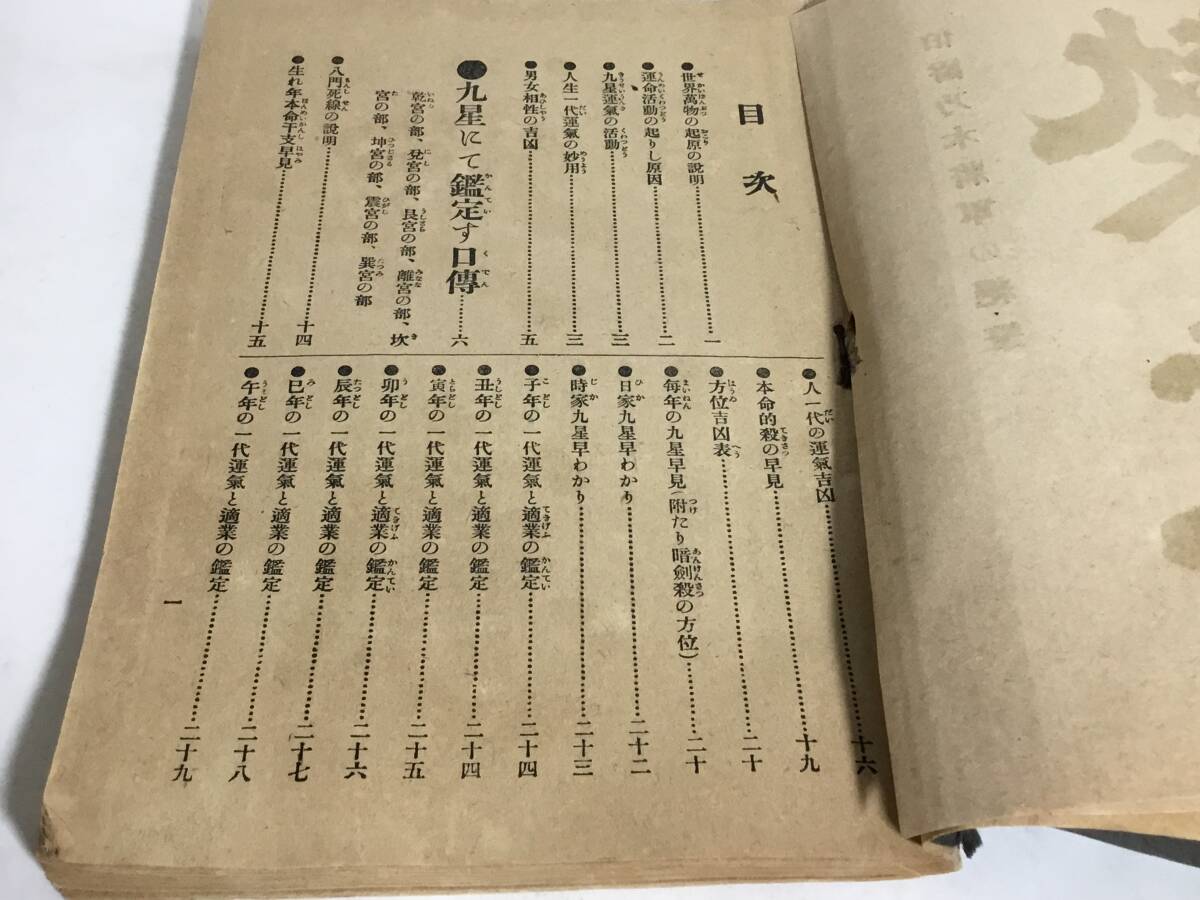 目次
●世界萬物の起原の說明………一
●運命活動の起りし原因………二
●九星運氣の活動………三
●人生一代運氣の妙用………三
●男女相性の吉凶………五
●九星にて鑑定す口傳………六
乾宮の部、兌宮の部、艮宮の部、離宮の部、坎
宮の部、坤宮の部、震宮の部、巽宮の部
●八門死線の說明………十四
●生れ年本命干支早見………十五
●人一代の運氣吉凶………十六
●本命的殺の早見………十九
●方位吉凶表………二十
●每年の九星早見(附たり暗劍殺の方位)………二十
●日家九星早わかり………二十二
●時家九星早わかり………二十三
●子年の一代運氣と適業の鑑定………二十四
●丑年の一代運氣と適業の鑑定………二十四
●寅年の一代運氣と適業の鑑定………二十五
●卯年の一代運氣と適業の鑑定………二十六
●辰年の一代運氣と適業の鑑定………二十七
●巳年の一代運氣と適業の鑑定………二十八
●午年の一代運氣と適業の鑑定………二十九
一